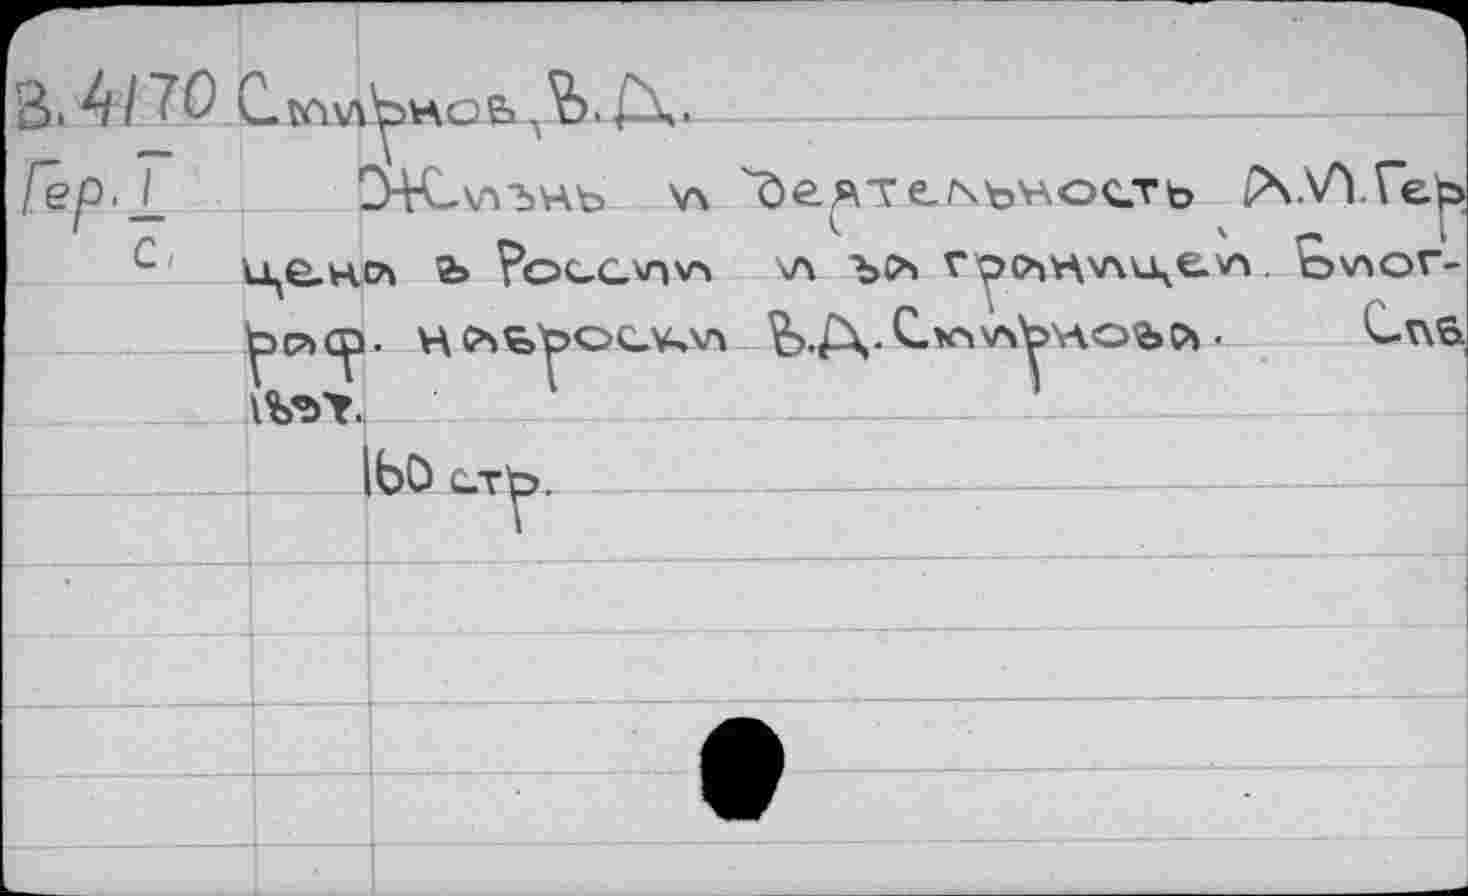 В. 4170 Смирнов, В. Д.
Гер. I Жизнь и деятельность А.И.Гер
С, цена в России и за границей. Биог-
раф. наброски В.Д. Смирнова. Спб.
1897.
160 стр.